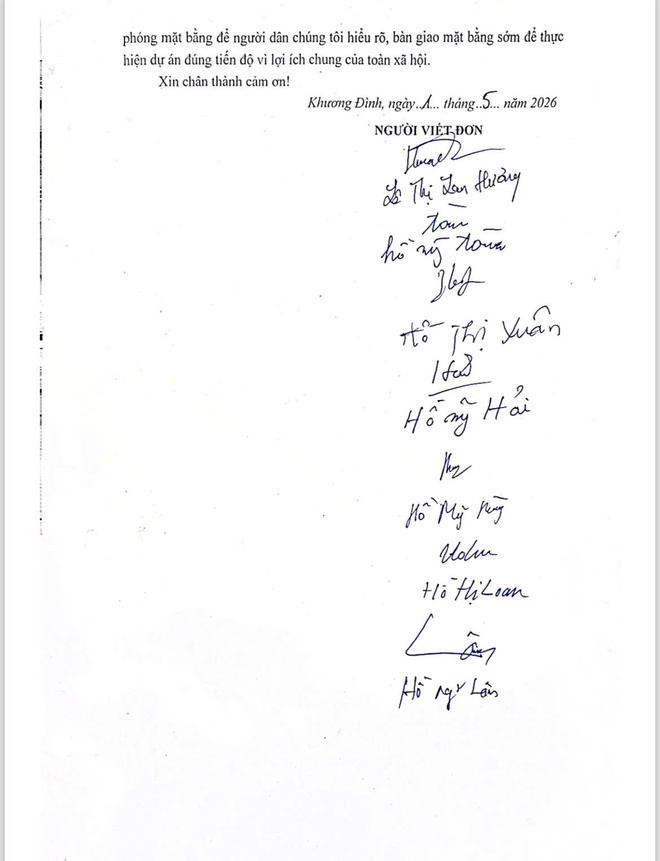 phóng mặt bằng để người dân chúng tôi hiểu rõ, bàn giao mặt bằng sớm để thực
hiện dự án đúng tiến độ vì lợi ích chung của toàn xã hội.
Xin chân thành cảm ơn!
Khương Đình, ngày..1... tháng..5... năm 2026
NGƯỜI VIẾT ĐƠN
Lê Thị Lan Hương
Hồ Mỹ
Hồ Thị Xuân
Hồ Mỹ Hải
Hồ Mỹ
Hồ Thị Loan
Lân
Hồ Lân